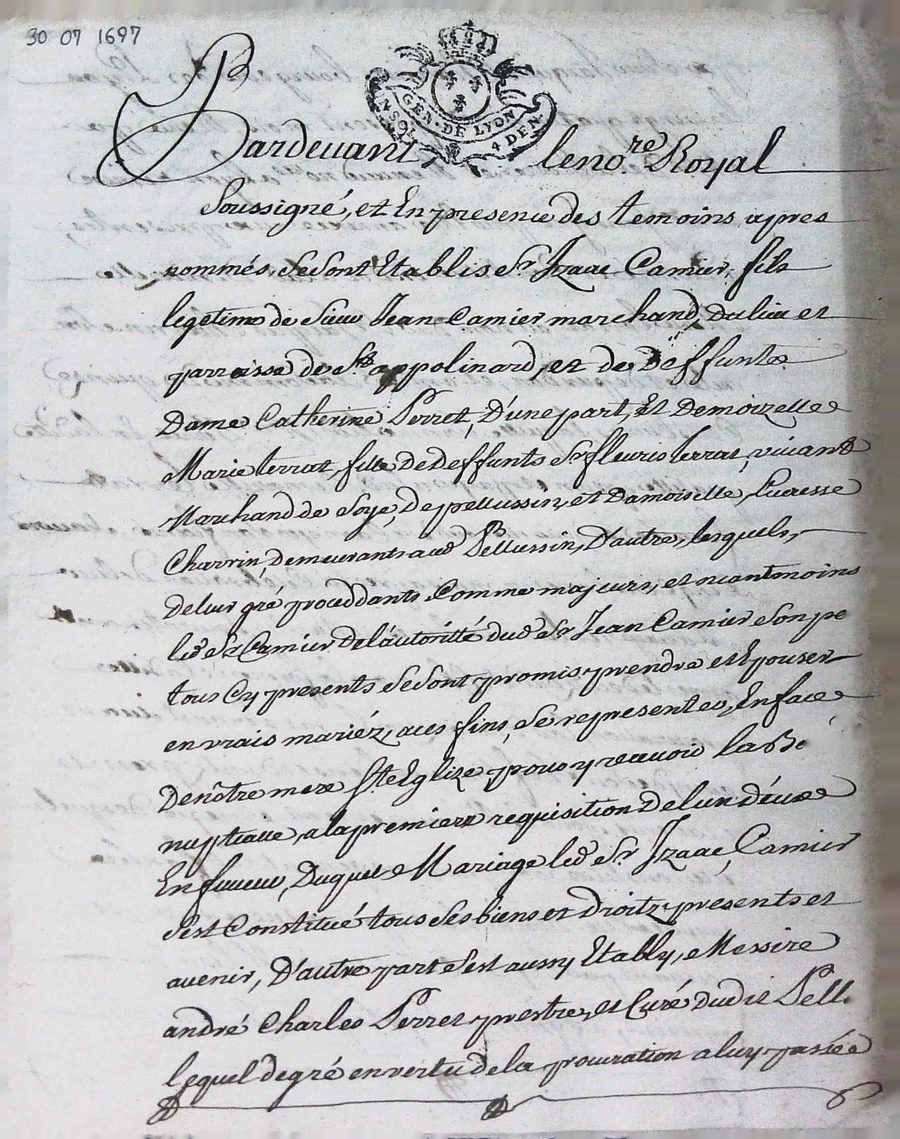 30 07 1697
GEN. DE LYON
4 DEN.
Pardevant, le no.re Royal
Soussigné, et En presence des temoins apres
nommés, se sont Etablis Sr Izaac Camier, fils
legitime de Sieur Jean Camier marchand, du lieu et
parroisse de St appolinard, et de Deffunte
Dame Catherine Perret, D'une part, Et Demoizelle
Marie terrat, fille De Deffunts Sr fleuris Terrat, vivant
Marchand de Soye, De pellussin, et Damoiselle Lucresse
Charvin, Demeurants aud Pellussin, D'autre, lesquels,
De leur gré proceddants Comme majeurs, et neantmoins
led Sr Camier De l'autoritté dud Sr Jean Camier son pe
tous Cy presents se sont promis prendre et Epouser
en vrais mariéz, a ces fins, se representer, En face
De nôtre mere Ste Eglize pour y recevoir la Bé
nuptialle, a la premiere requisition De l'un d'eux
En faveur, Duquel Mariage led Sr Izaac Camier
s'est Constitué tous ses biens et Droitz presents et
avenir, D'autre part s'est aussy Etably, Messire
andré Charles Perret prestre, et Curé Dudit Pell.
lequel de gré en vertu de la procuration a luy passée